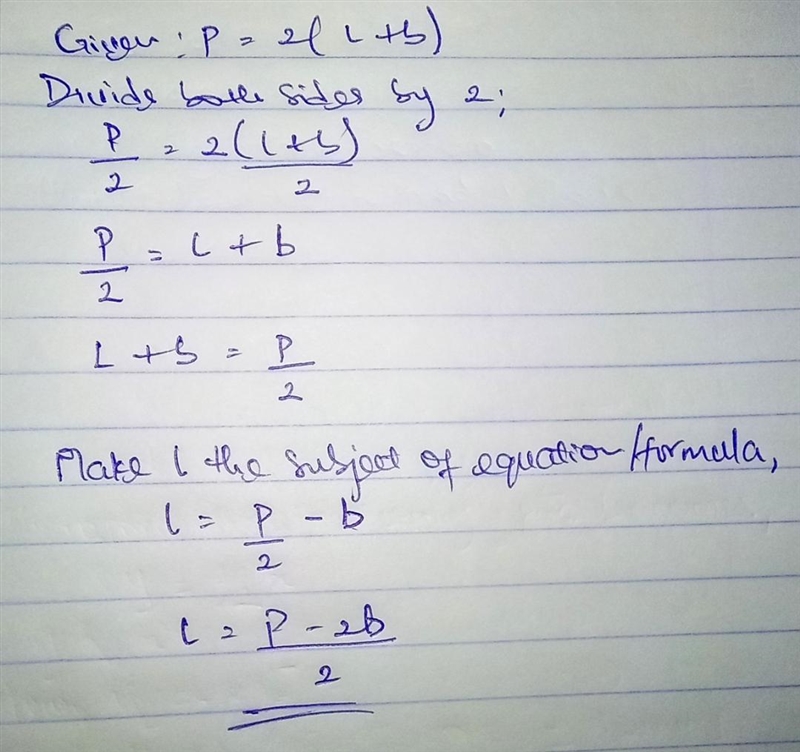 Given: P = 2(L+b)
Divide both sides by 2;
P/2 = 2(l+b)/2
P/2 = l + b
L + b = P/2
Make l the subject of equation/formula,
l = P/2 - b
l = P - 2b/2